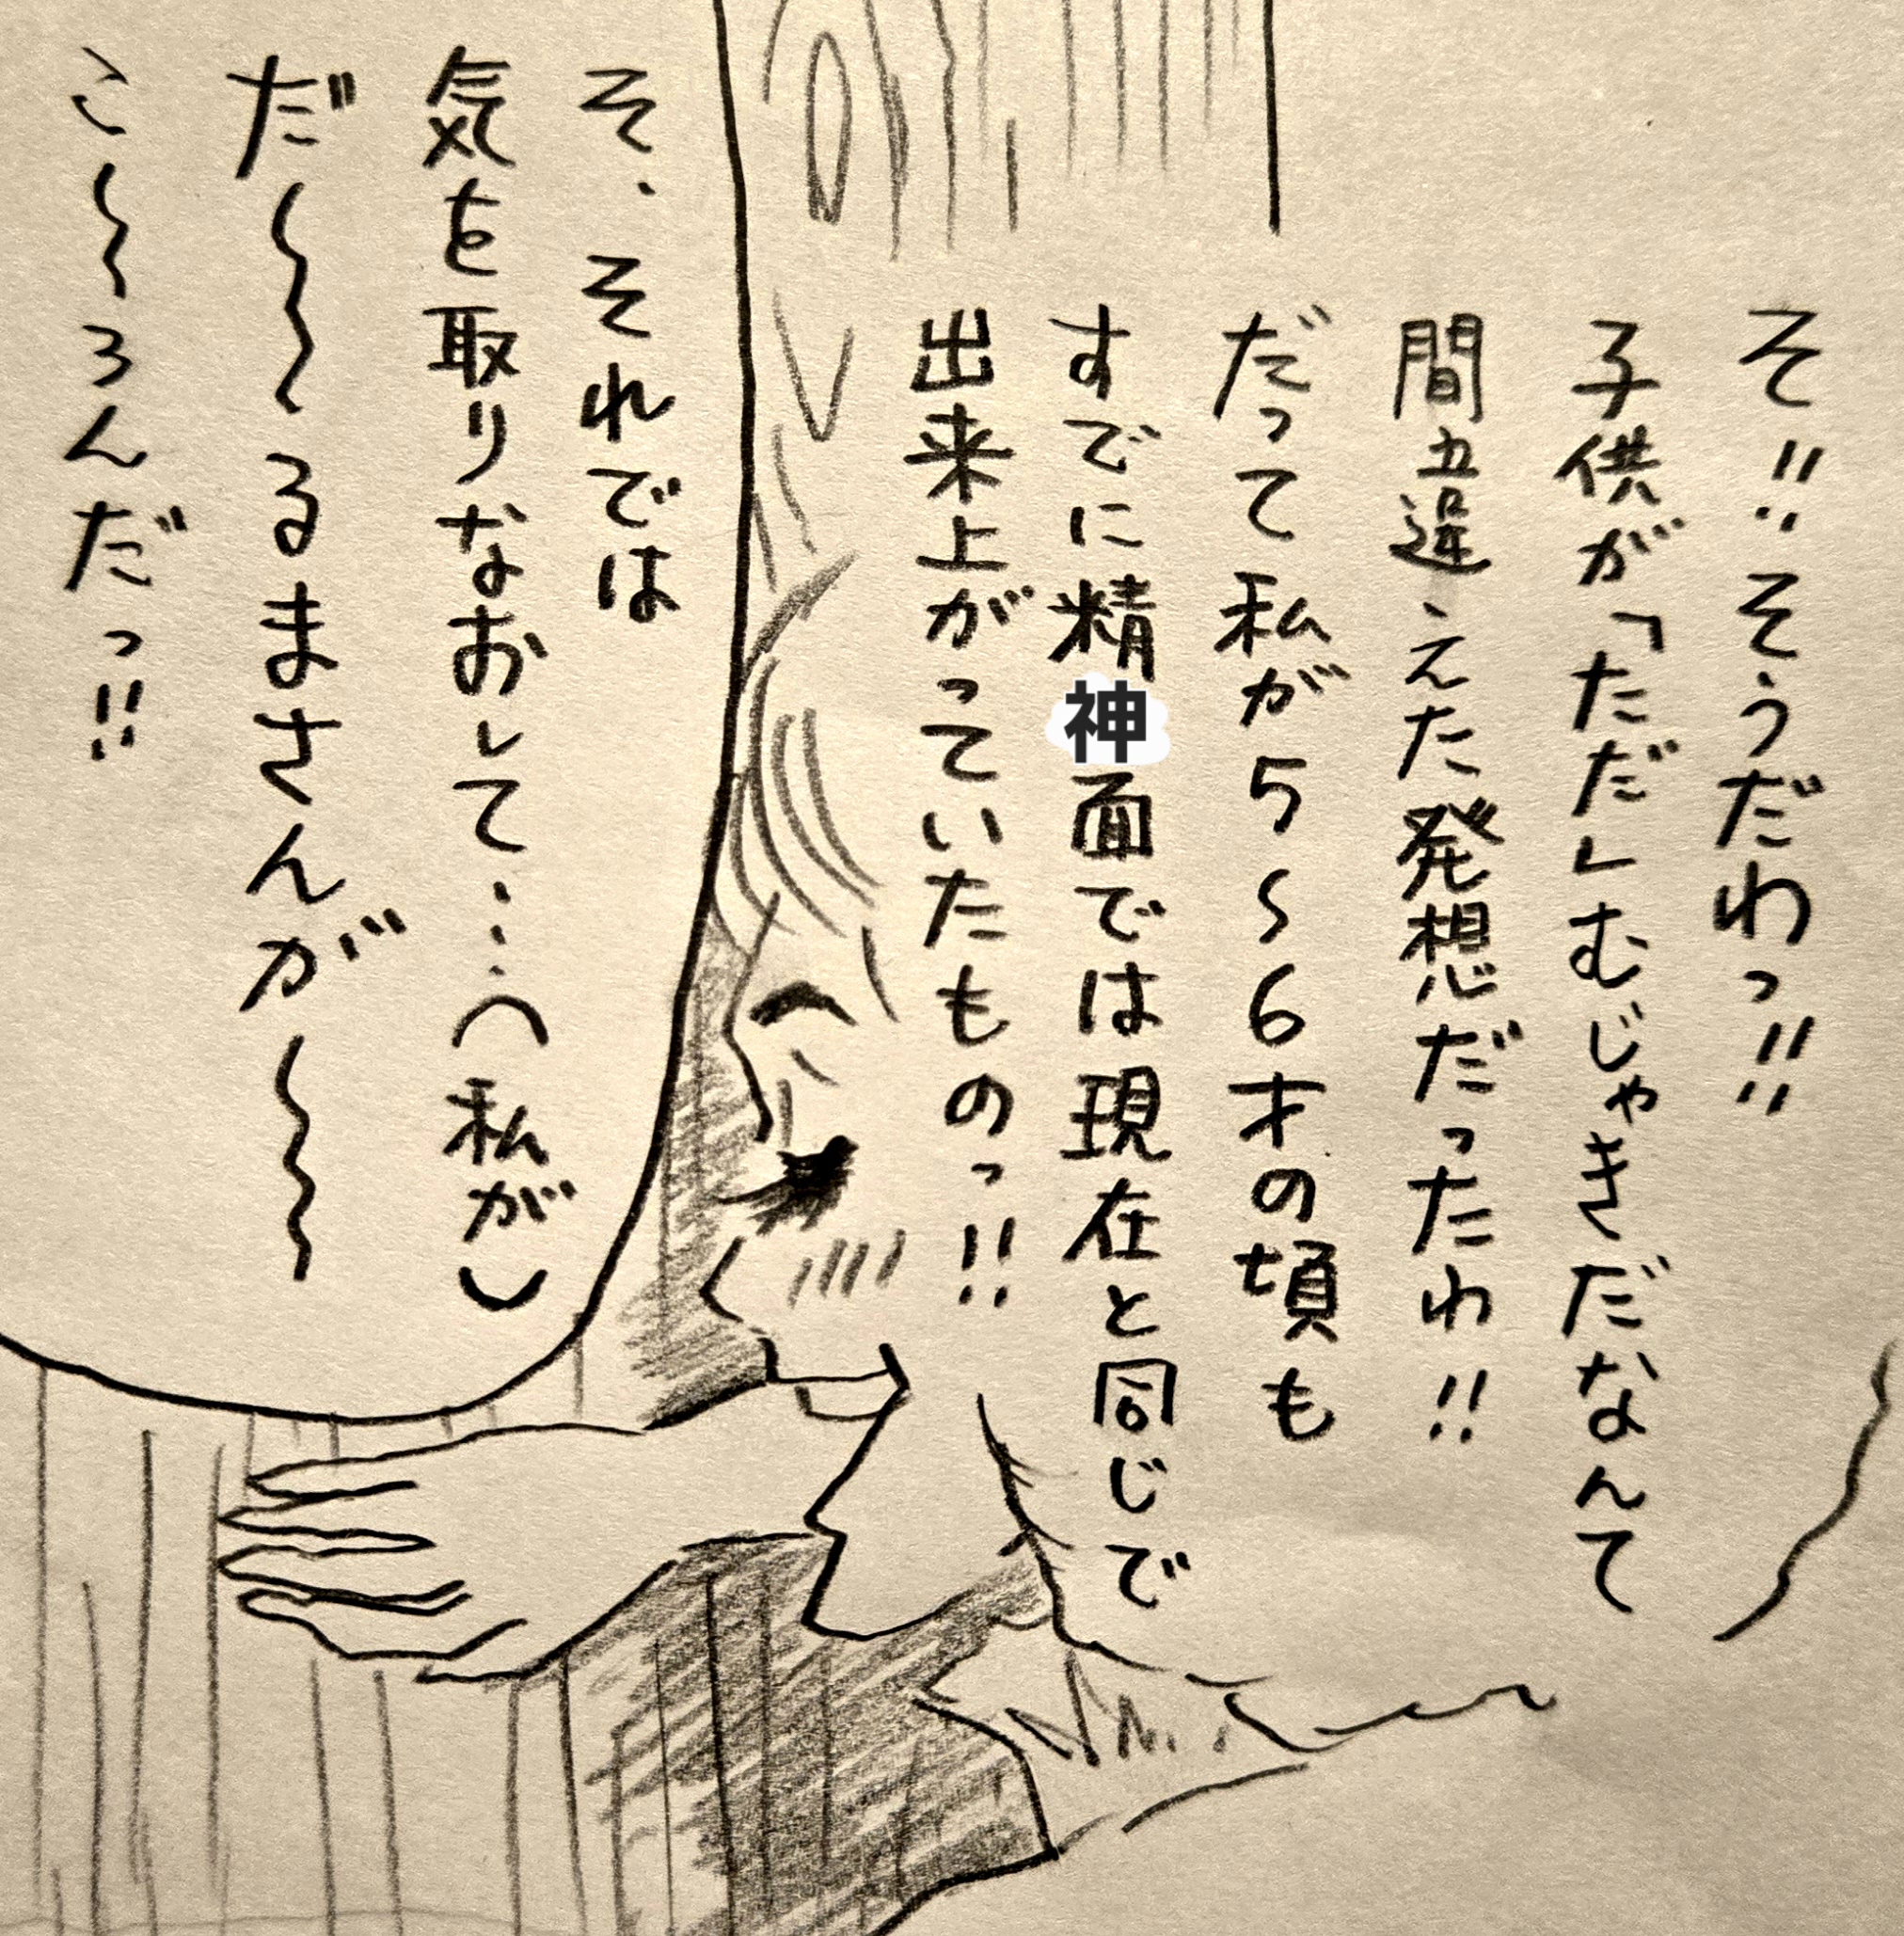 そ!!そうだわっ!!
子供が「ただ」むじゃきだなんて
間違えた発想だったわ!!
だって私が5〜6才の頃も
すでに精神面では現在と同じで
出来上がっていたものっ!!
そ、それでは
気を取りなおして…(私が)
だ〜〜るまさんが〜〜
こ〜〜ろんだっ!!